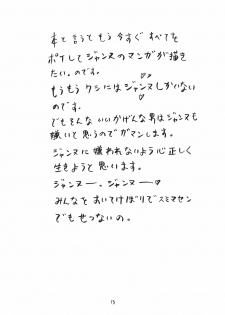 本と言うともう今すぐすべてを
ポイしてジャンヌのマンガが描き
たい。のです。
もうもうワシにはジャンヌしかいない
のです。
でもそんないいかげんな男はジャンヌも
嫌いて思うのでガマンします。
ジャンヌに嫌われないよう心正しく
生きようと思います。
ジャンヌー、ジャンヌー♡
みんなをおいてけぼりでスミマセン
でもせつないの。
15